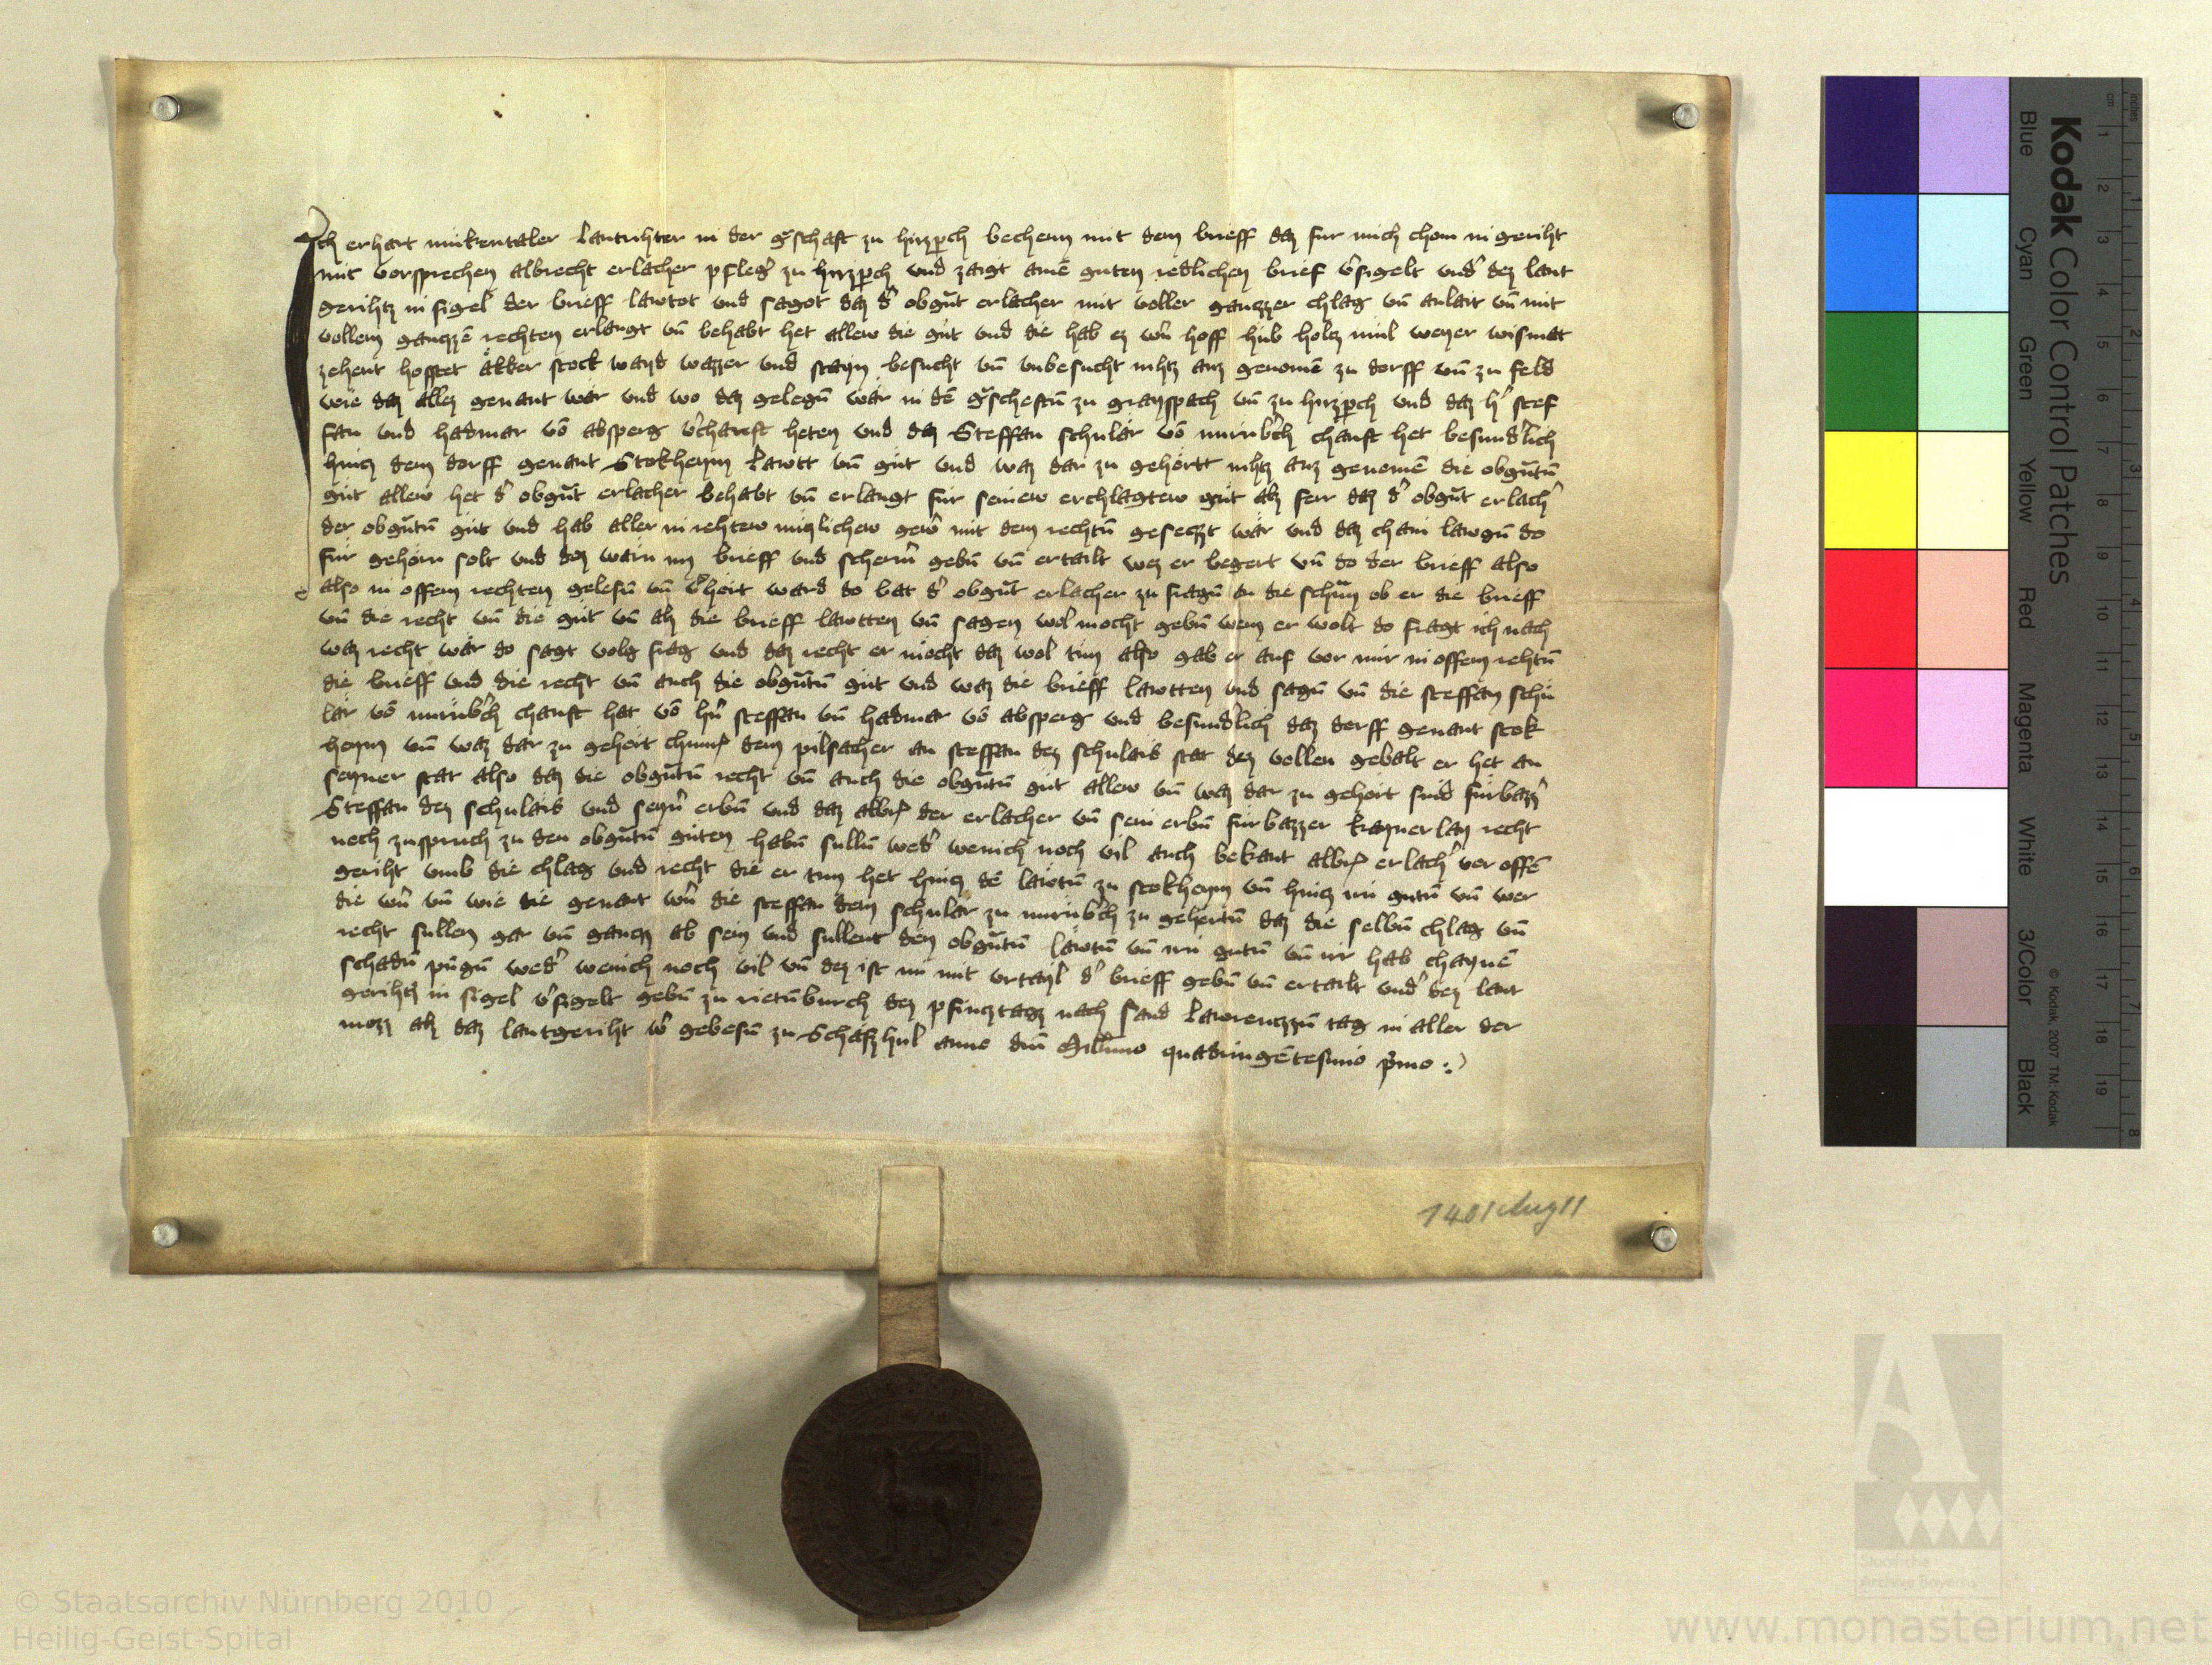 Ich erhart mukentaler Lantrihter in der gschaft zu hirzperch bechenn mit dem brieff daz fur mich chom in geriht
mit vorsprechen albrecht erlacher pfleg' zu hirzperch vnd zaigt ainē guten redlichen brief v'sigelt vnd' dez lant
gerihtz insigel der brieff lawtot vnd sagot daz d' obgūt erlacher mit voller ganczer chlag vn̄ anlait vn̄ mit
vollem ganczē rechten erlangt vn̄ behabt het allew die gut vnd die hab ez wn̄ hoff hub holcz mul weyer wismat
zehent hofstet akker stock wayd wazzer vnd stayn besucht vn̄ vnbesucht nihtz auz genomē zu dorff vn̄ zu feld
wie daz allez genant wär vnd wo daz gelegn̄ wär in dē gscheftn̄ zu grayspach vn̄ zu hirzperch vnd daz h' stef
fan vnd hadmar vō absperg v'chauft heten vnd daz Steffan schulär vō nurnb'ch chauft het besund'lich
hincz dem dorff genant Stokheym Lawtt vn̄ gut vnd waz dar zu gehörtt nihtz auz genomē die obgūtn̄
gut allew het d' obgūt erlacher behabt vn̄ erlangt für seinew erchlagtew gut alz ferr daz d' obgūt erlach'
der obgūtn̄ gut vnd hab aller in rehtew nuczlichew gew' mit dem rechtn̄ geseczt wär vnd daz chain lawgn̄ do
für gehörn solt vnd dez warn im brieff vnd scherm gebn̄ vn̄ ertailt wez er begert vn̄ do der brieff also
also in offem rechten gelesn̄ vn̄ v'hört ward do bat d' obgūt erlacher zu fragn̄ an die schran ob er die brieff
vn̄ die recht vn̄ die gut vn̄ alz die brieff lawtten vn̄ sagen wol mocht gebn̄ wem er wolt do fragt ich nach
waz recht wär do sagt volg frag vnd daz recht er möcht daz wol tun also gab er auf vor mir in offem rehtn̄
die brieff vnd die recht vn̄ auch die obgūtn̄ gut vnd waz die brieff lawtten vnd sagn̄ vn̄ die steffan schu
lar vō nurnb'ch chauft hat vō hn̄ steffan vn̄ hadmar vō absperg vnd besund'lich daz dorff genant stok
heym vn̄ waz dar zu gehört dem pilsacher an steffan dez schulärs stat dez vollen gebalt er het an
seyner stat also daz die obgūtn̄ recht vn̄ auch die obgūtn̄ gut allew vn̄ waz dar zu gehört sind fürbazz'
Steffan dez schulärs vnd seyn' erbn̄ vnd daz der erlacher vn̄ sein erbn̄ fürbazzer kaynerlay recht
noch zuspruch zu den obgūtn̄ guten habn̄ sulln̄ wed' wenich noch vil auch bekant erlach' vor offē
geriht vmb die chlag vnd recht die er tun het hincz dē läwtn̄ zu stokheym vn̄ hincz irn gutn̄ vn̄ wer
die wn̄ vn̄ wie die genant wn̄ die steffan dem schulär zu nurnb'ch zu gehörtn̄ daz die selbn̄ chlag vn̄
recht sullen gar vn̄ gancz ab sein vnd sullent den obgūtn̄ läwtn̄ vn̄ irn gutn̄ vn̄ ir hab chaynē
schadn̄ pringn̄ wed' wenich noch vil vn̄ dez ist im mit vrtayl d' brieff gebn̄ vn̄ ertailt vnd' dez lant
gerihtz insigel v'sigelt gebn̄ zu rietn̄burch dez pfincztagz nach sand Lawrenczn̄ tag in aller der
mazz alz daz lantgeriht w' gebesn̄ zu Schafzhul anno dn̄i Millīmo quadringētesimo p'mo :)
1401 Aug 11
Kodak Color Control Patches
Blue Cyan Green Yellow Red Magenta White 3/Color Black
© Kodak, 2007 TM: Kodak
cm 1 2 3 4 5 6 7 8 9 10 11 12 13 14 15 16 17 18 19
inches 1 2 3 4 5 6 7 8
© Staatsarchiv Nürnberg 2010
Heilig-Geist-Spital
Staatliche
Archive Bayerns
www.monasterium.net